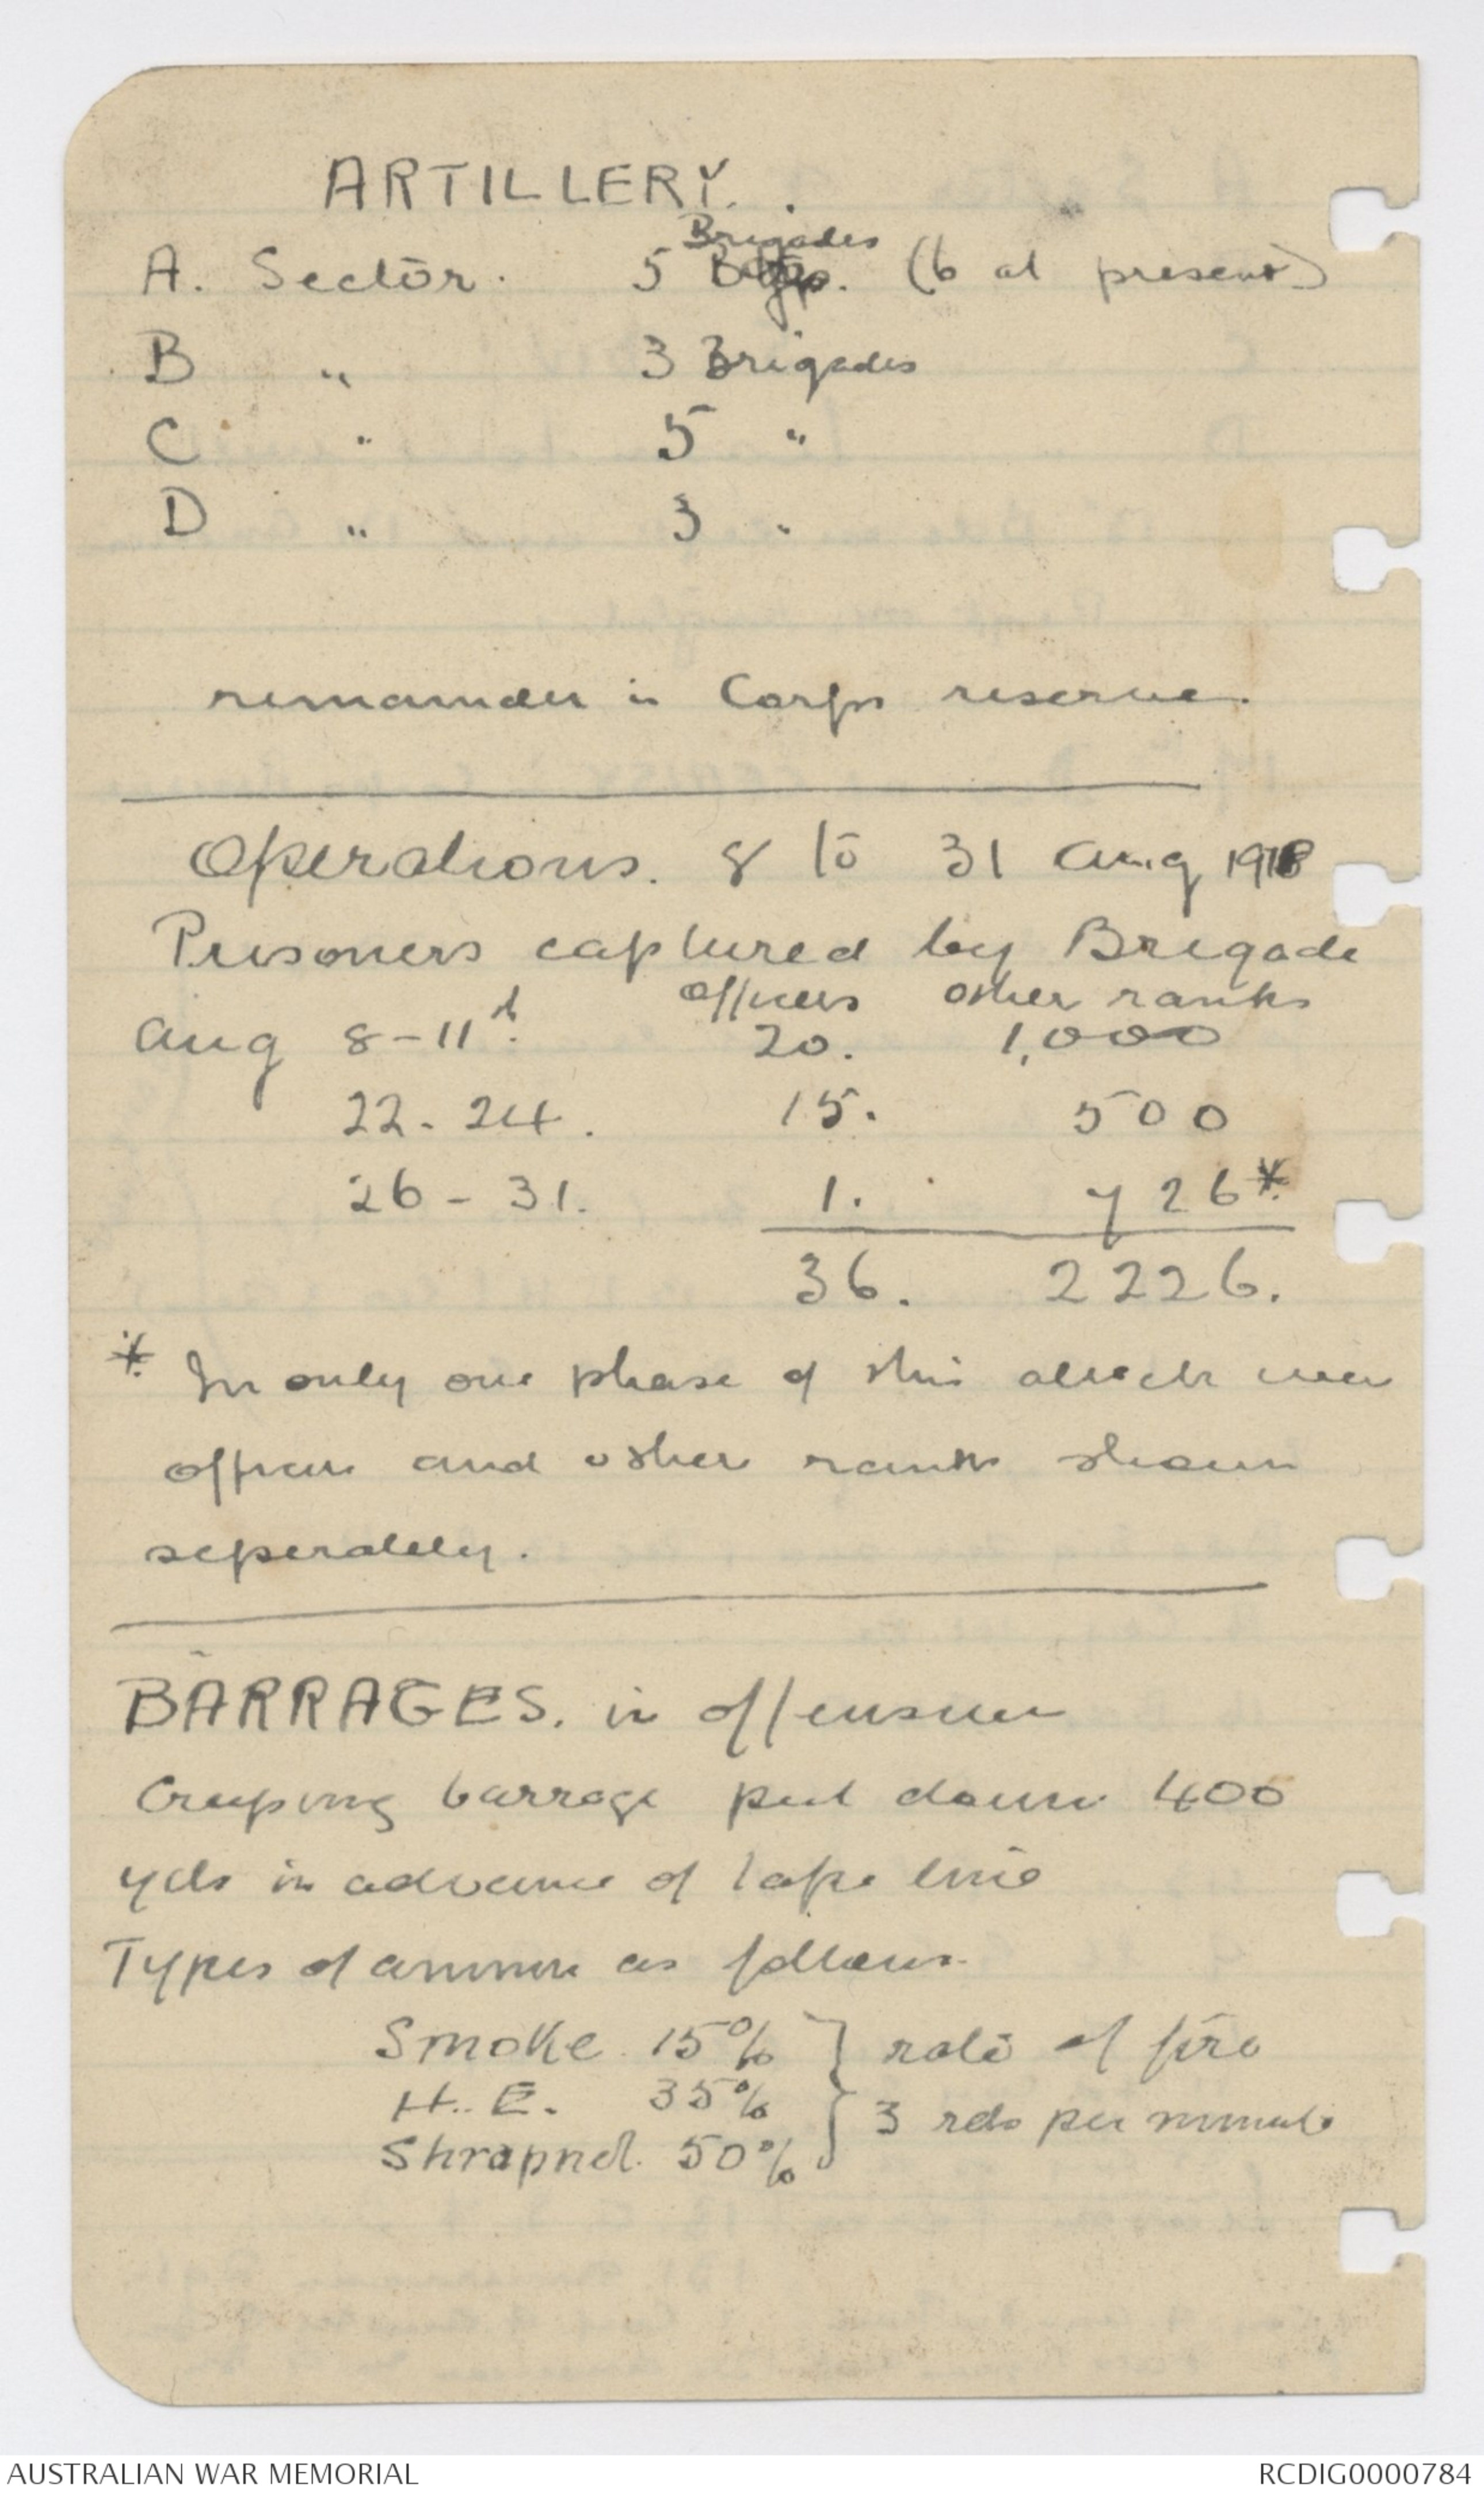 ARTILLERY.
Brigades
A. Sector. 5 (6 at present)
B " 3 Brigades
C " 5 "
D " 3 "
remainder in Corps reserve.
Operations. 8 to 31 Aug 1918
Prisoners captured by Brigade
officers other ranks
Aug 8-11th. 20. 1,000
22-24. 15. 500
26-31. 1. 726*
36. 2226.
* In only one phase of this attack were
officers and other ranks shown
seperately.
BARRAGES. in offensive
Creeping barrage put down 400
yds in advance of tape line
Types of ammn as follows.
Smoke 15% } rate of fire
H.E. 35% } 3 rds per minute
Shrapnel. 50%
AUSTRALIAN WAR MEMORIAL RCDIG0000784